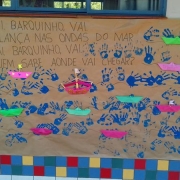 I BARQUINHO, VAI
LANÇA NAS ONDAS DO MAR
I BARQUINHO, VAI
UEM SABE AONDE VAI CHEGAR